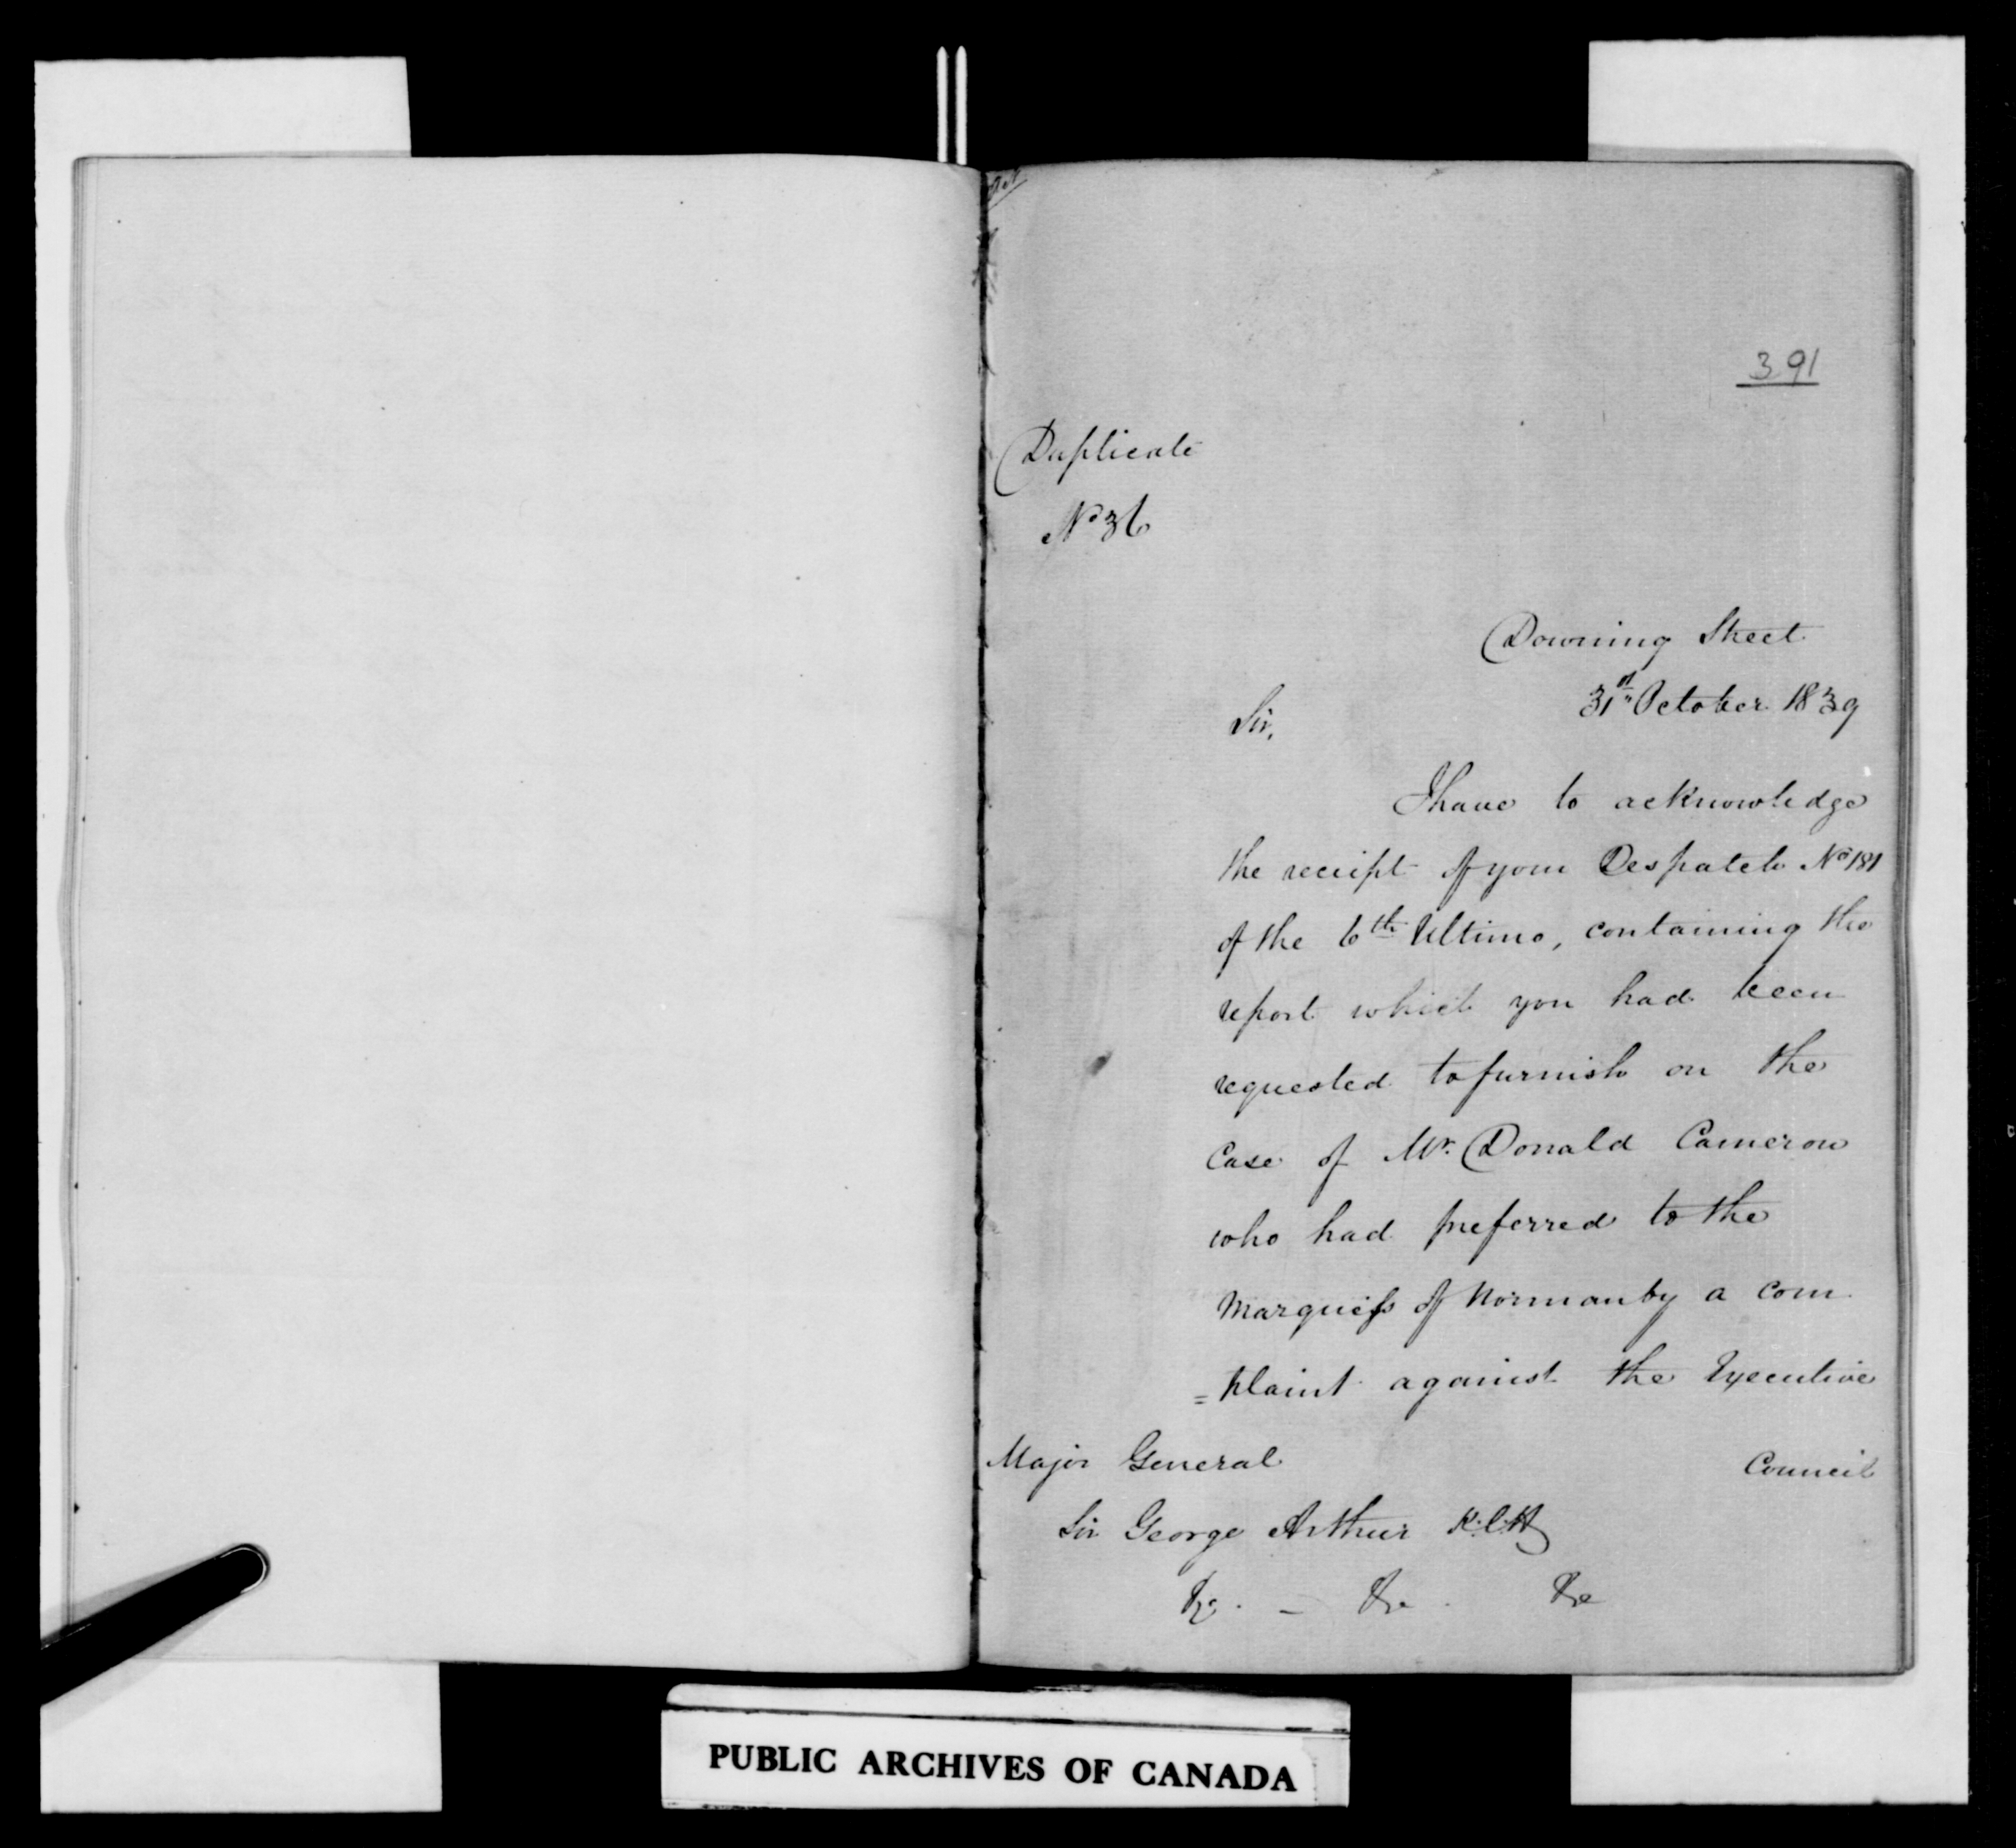 391
Duplicate
No 36
Downing Street
31st October 1839
Sir,
I have to acknowledge
the receipt of your Despatch No 181
of the 6th Ultimo, containing the
report which you had been
requested to furnish on the
Case of Mr. Donald Cameron
who had preferred to the
Marquess of Normanby a com
=plaint against the Executive
Council
Major General
Sir George Arthur K.C.H
&c. - &c. &c
PUBLIC ARCHIVES OF CANADA